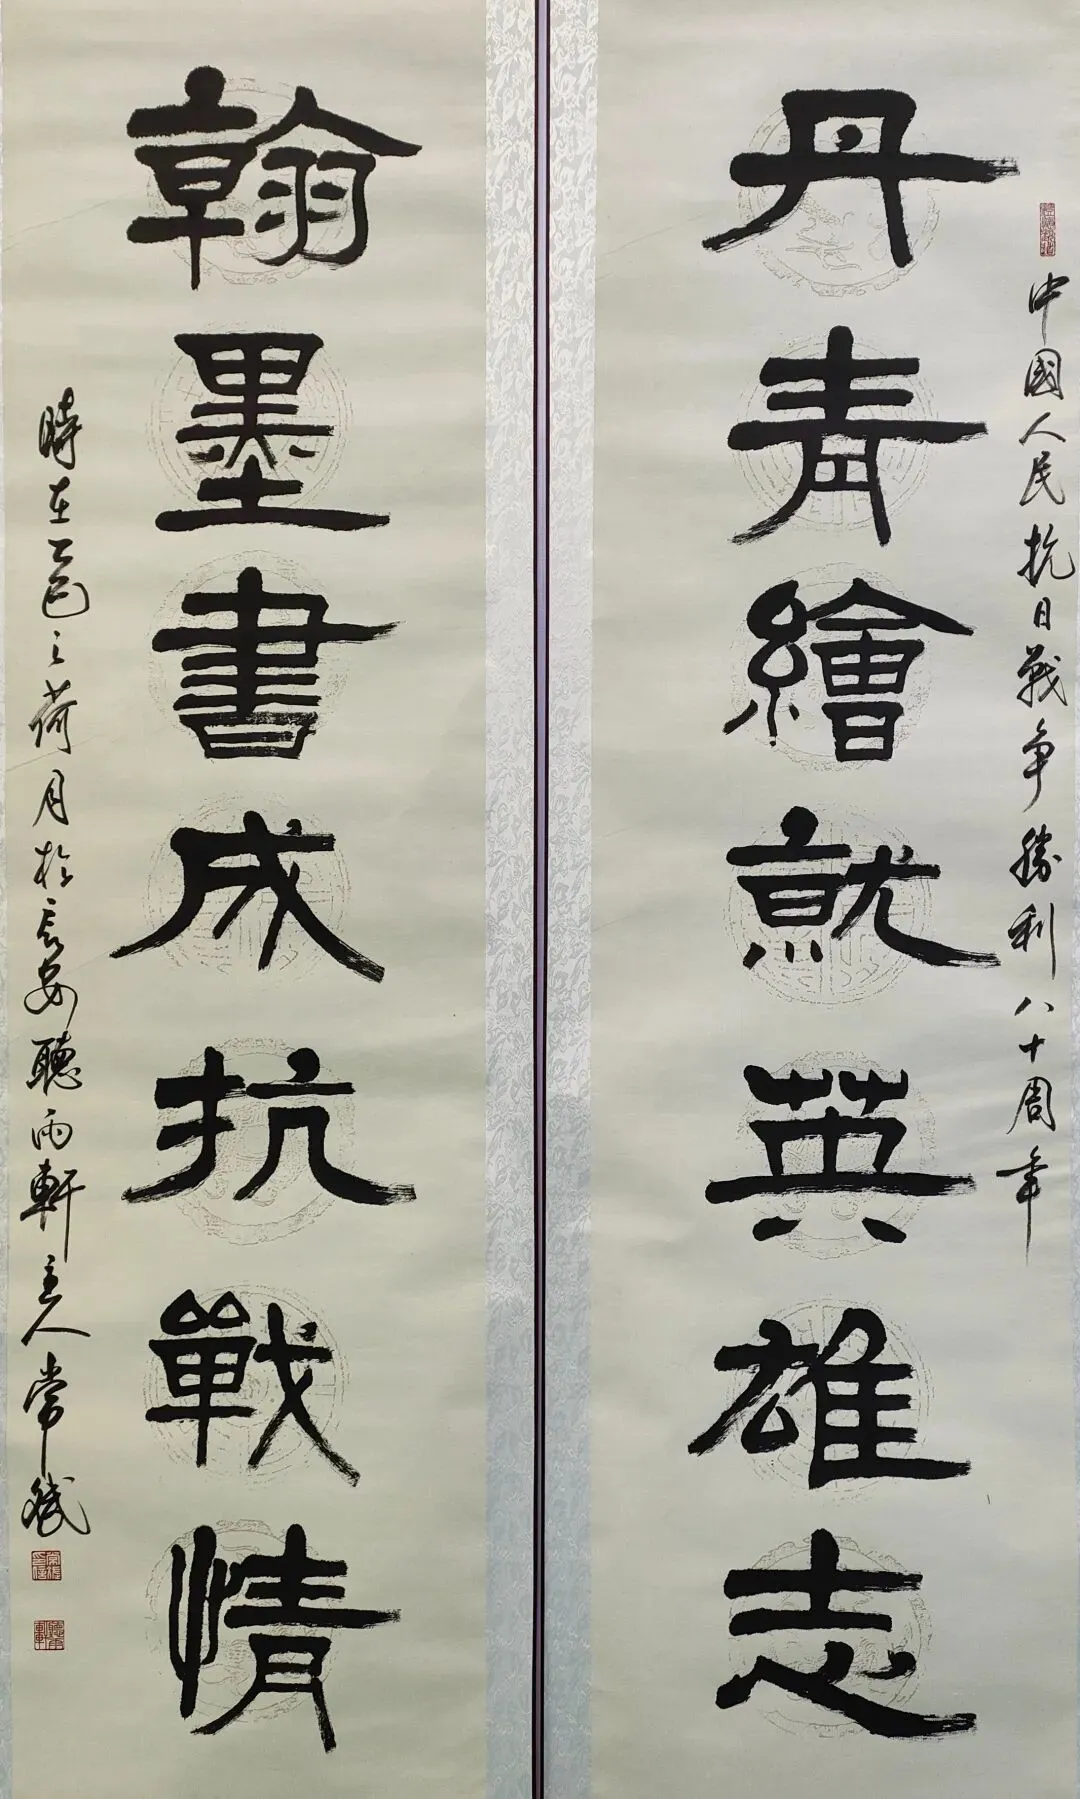 中國人民抗日戰争勝利八十周年
丹青繪就英雄志
翰墨書成抗戰情
時在乙巳之荷月於長安聽雨軒主人常斌